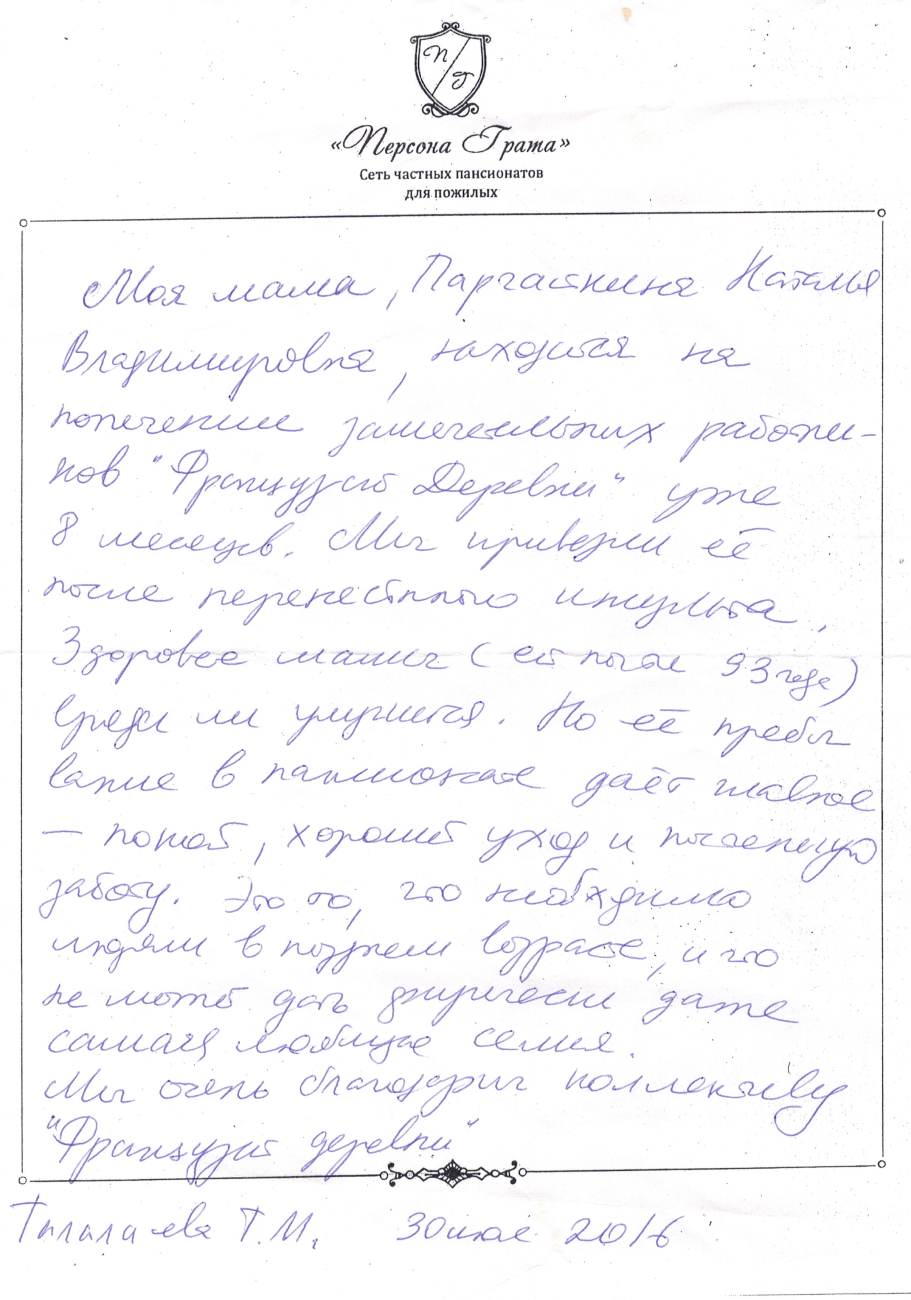 П/Г
«Персона Грата»
Сеть частных пансионатов
для пожилых
Моя мама, Наталья
Владимировна, находится на
попечении замечательных работни-
ков "Французской Деревни" уже
8 месяцев. Мы привезли её
после перенесённого инсульта.
Здоровье мамы (ей почти 93 года)
вряд ли улучшится. Но её пребы
вание в пансионате даёт главное
— покой, хороший уход и постоянную
заботу. Это то, что необходимо
людям в позднем возрасте, и что
не может дать физически даже
самая любящая семья.
Мы очень благодарны коллективу
"Французской деревни"
Талалаева Т.М. 2016